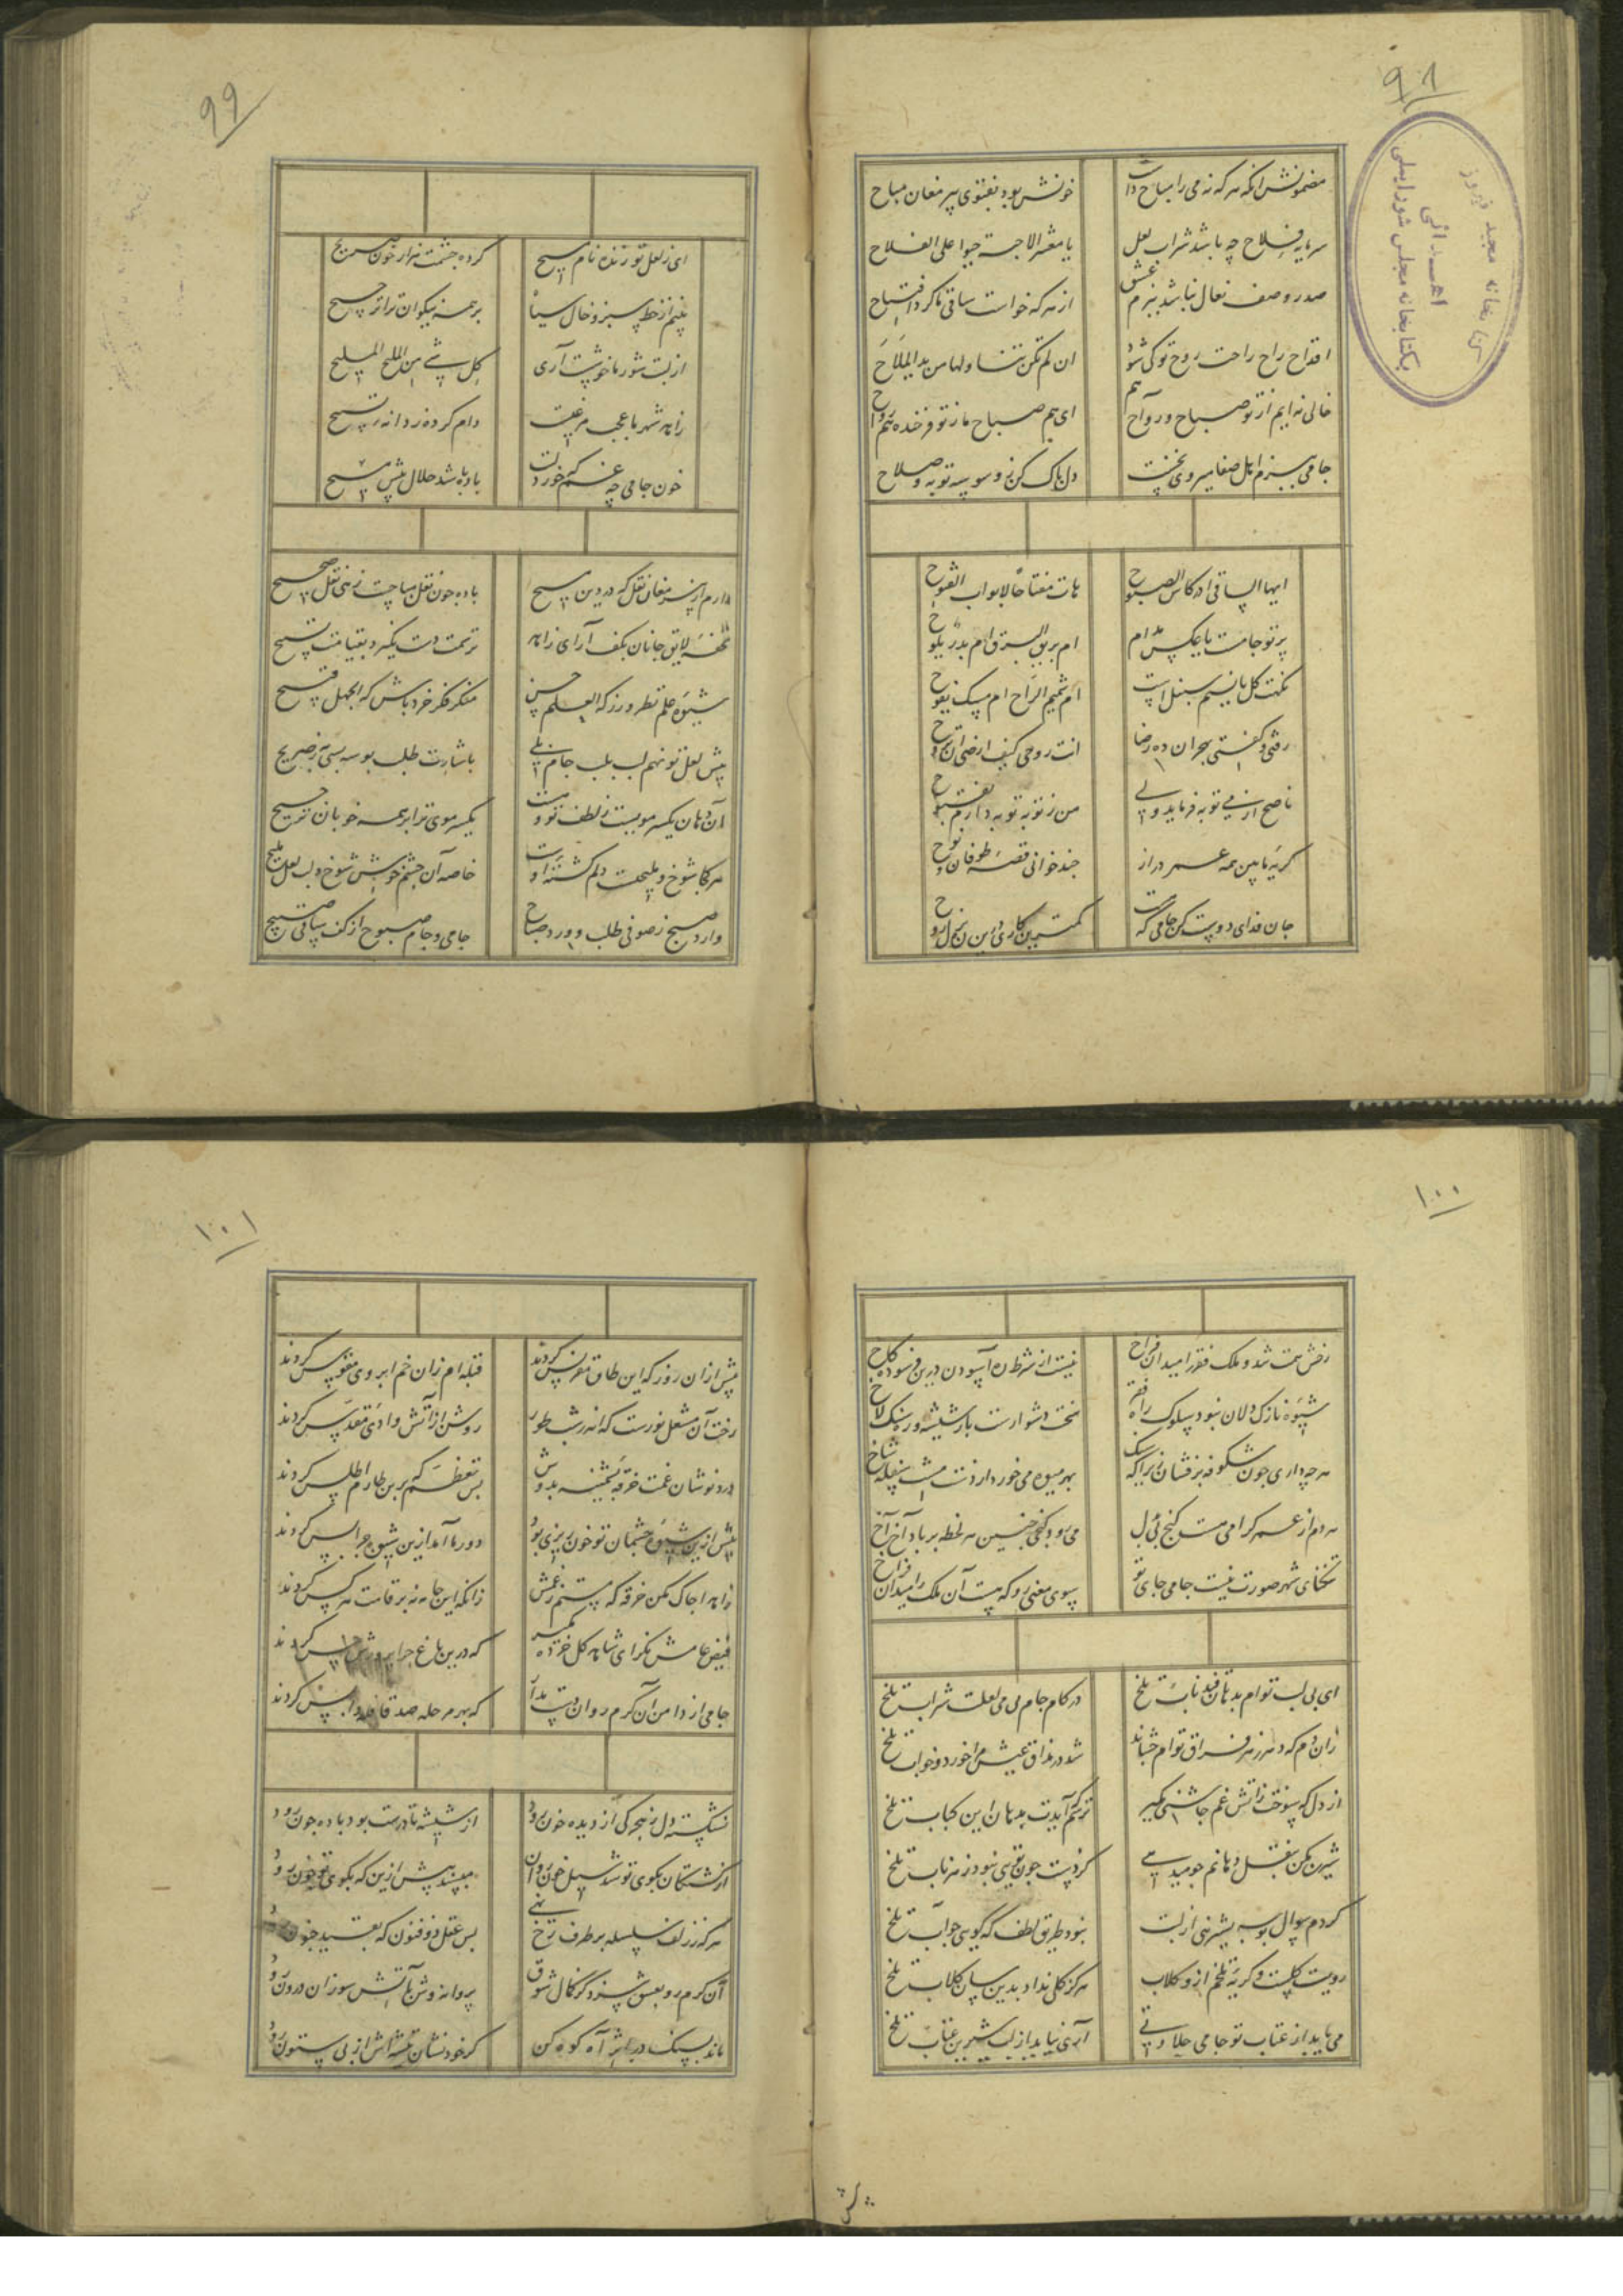 ۹۸
کتابخانه مجید فیروز
اهدائی
بکتابخانه مجلس شورایملی
مضمونش آنکه هر که نه می را مباح داشت
خونش بود بفتوی پیر مغان مباح
سرمایه فلاح چه باشد شراب لعل
یا معشر الاحبة حیوا علی الفلاح
صدر و صف نعال نباشد ببزم عشق
از هر که خواست ساقی ما کرد افتتاح
اقداح راح راحت روح تو کی شود
ان لم تکن تناولها من ید الملاح
خالی نه ایم از تو صباح و رواح هم
ای هم صباح ما ز تو فرخنده هم رواح
جامی ببزم اهل صفا میروی نخست
دل پاک کن ز وسوسه توبه و صلاح
ایها الساقی ادر کاس الصبوح
هات مفتاحا لابواب الفتوح
پرتو جامست یا عکس مدام
ام بریق البرق ام بدر یلوح
نکهت گل یا نسیم سنبل است
ام شمیم الراح ام مسک یفوح
رفتی و گفتی بهجران ده رضا
انت روحی کیف ارضی ان تروح
ناصح از می توبه فرماید ولی
من ز توبه توبه دارم نصوح
گریه ما بین همه عمر دراز
چند خوانی قصه طوفان نوح
جان فدای دوست کن جامی که هست
کمترین کاری درین ره بذل روح
۹۹
ای ز لعل تو زنده نام مسیح
کرده چشمت هزار خون صریح
بینم از خط سبز و خال سیاه
بر همه نیکوان ترا ترجیح
از لبت شور ما خوشست آری
کل شیء من الملیح الملیح
زاهد شهر ما عجب مرغیست
دام کرده ز دانه تسبیح
خون جامی چه غم که خورد لبت
باده باشد حلال پیش مسیح
دارم از پیر مغان نقل که در دین مسیح
باده چون نقل مباحست زهی نقل صحیح
تحفه لایق جانان بکف آر ای زاهد
ترسمت دست نگیرد بقیامت تسبیح
شیوه علم نظر ورز که العلم حسن
منکر فکر خرد باش که الجهل قبیح
پیش لعل تو نهم لب بلب جام ولی
باشارت طلب بوسه به نه بصریح
آن دهان یکسر مو نیست ز لطف تو و هست
یکسر موی ترا بر همه خوبان ترجیح
هر کجا شوخ و ملیحست دلم کشته اوست
خاصه آن چشم خوش شوخ و لب لعل ملیح
وارد صبح ز صوفی طلب و ورد صباح
جامی و جام صبوح از کف ساقی صبیح
۱۰۰
رخش همت شد و ملک فقر را میدان فراخ
نیست از شرط ره آسودن درین فرسوده کاخ
شیوه نازک دلان نبود سلوک راه فقر
سخت دشوارست بار شیشه و ره سنگلاخ
هرچه داری چون شکوفه برفشان زیرا که سنگ
بهر میوه می خورد از دست مشتی سفله شاخ
هر دم از عمر گرامی هست گنجی بی بدل
می رود گنجی چنین هر لحظه بر باد آخ آخ
تنگنای شهر صورت نیست جامی جای تو
سوی معنی رو که هست آن ملک را میدان فراخ
ای بی لب توام بدهان قند ناب تلخ
در کام جام بی می لعلت شراب تلخ
زان دم که دهر زهر فراق توام چشاند
شد در مذاق عیش مرا خورد و خواب تلخ
از دل که سوخت ز آتش غم چاشنی مگیر
ترسم که آیدت بدهان این کباب تلخ
شیرین مکن بنقل دهانم چو می دهی
کز دست چون تویی نبود زهر ناب تلخ
کردم سوال بوسه شیرینی از لبت
نبود طریق لطف که گویی جواب تلخ
رویت گلست و گریه تلخم ازو گلاب
هرگز گلی نداد بدین سان گلاب تلخ
می یابد از عتاب تو جامی حلاوتی
آری نیاید از لب شیرین عتاب تلخ
۱۰۱
پیش ازان روز که این طاق مقرنس کردند
قبله ام زان خم ابروی مقوس کردند
رخت آن مشعل نورست که اندر شب طور
روشن از آتش وادی مقدس کردند
درد نوشان غمت خرقه پشمینه بدوش
بس تعظم که برین طارم اطلس کردند
پیش ازین شیوه چشمان تو خون ریزی بود
دور ما آمد ازین شیوه چرا بس کردند
زاهدا چاک مکن خرقه که مستم ز غمش
زانکه این جامه نه بر قامت هر کس کردند
فیض عامش نگر ای شاهد گل خرده مگیر
که درین باغ چرا پرورش خس کردند
جامی از دامن آن گرم روان دست مدار
که بهر مرحله صد قافله واپس کردند
نشکسته دل ز هجر کی از دیده خون رود
از شیشه تا درست بود باده چون رود
از کشتگان بکوی تو شد سیل خون روان
مپسند بیش ازین که بکوی تو خون رود
هر که ز زلف سلسله بر طرف رخ نهی
بس عقل ذوفنون که بقید جنون رود
آن گرم رو بعشق سزد کز کمال شوق
پروانه وش بآتش سوزان درون رود
ماند بسنگ در اثر آه کوه کن
گر خود نشان تیشه اش از بی ستون رود